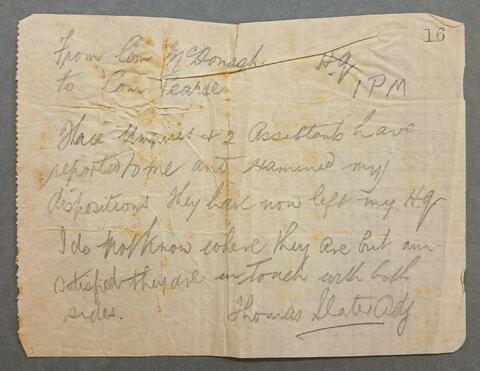 16
From Com McDonagh H.Q.
to Com Pearse 1 PM
Three Umpires & 2 Assistants have
reported to me and examined my
dispositions They have now left my H.Q
I do not know where they are but am
satisfied they are in touch with both
sides. Thomas Slater Adj